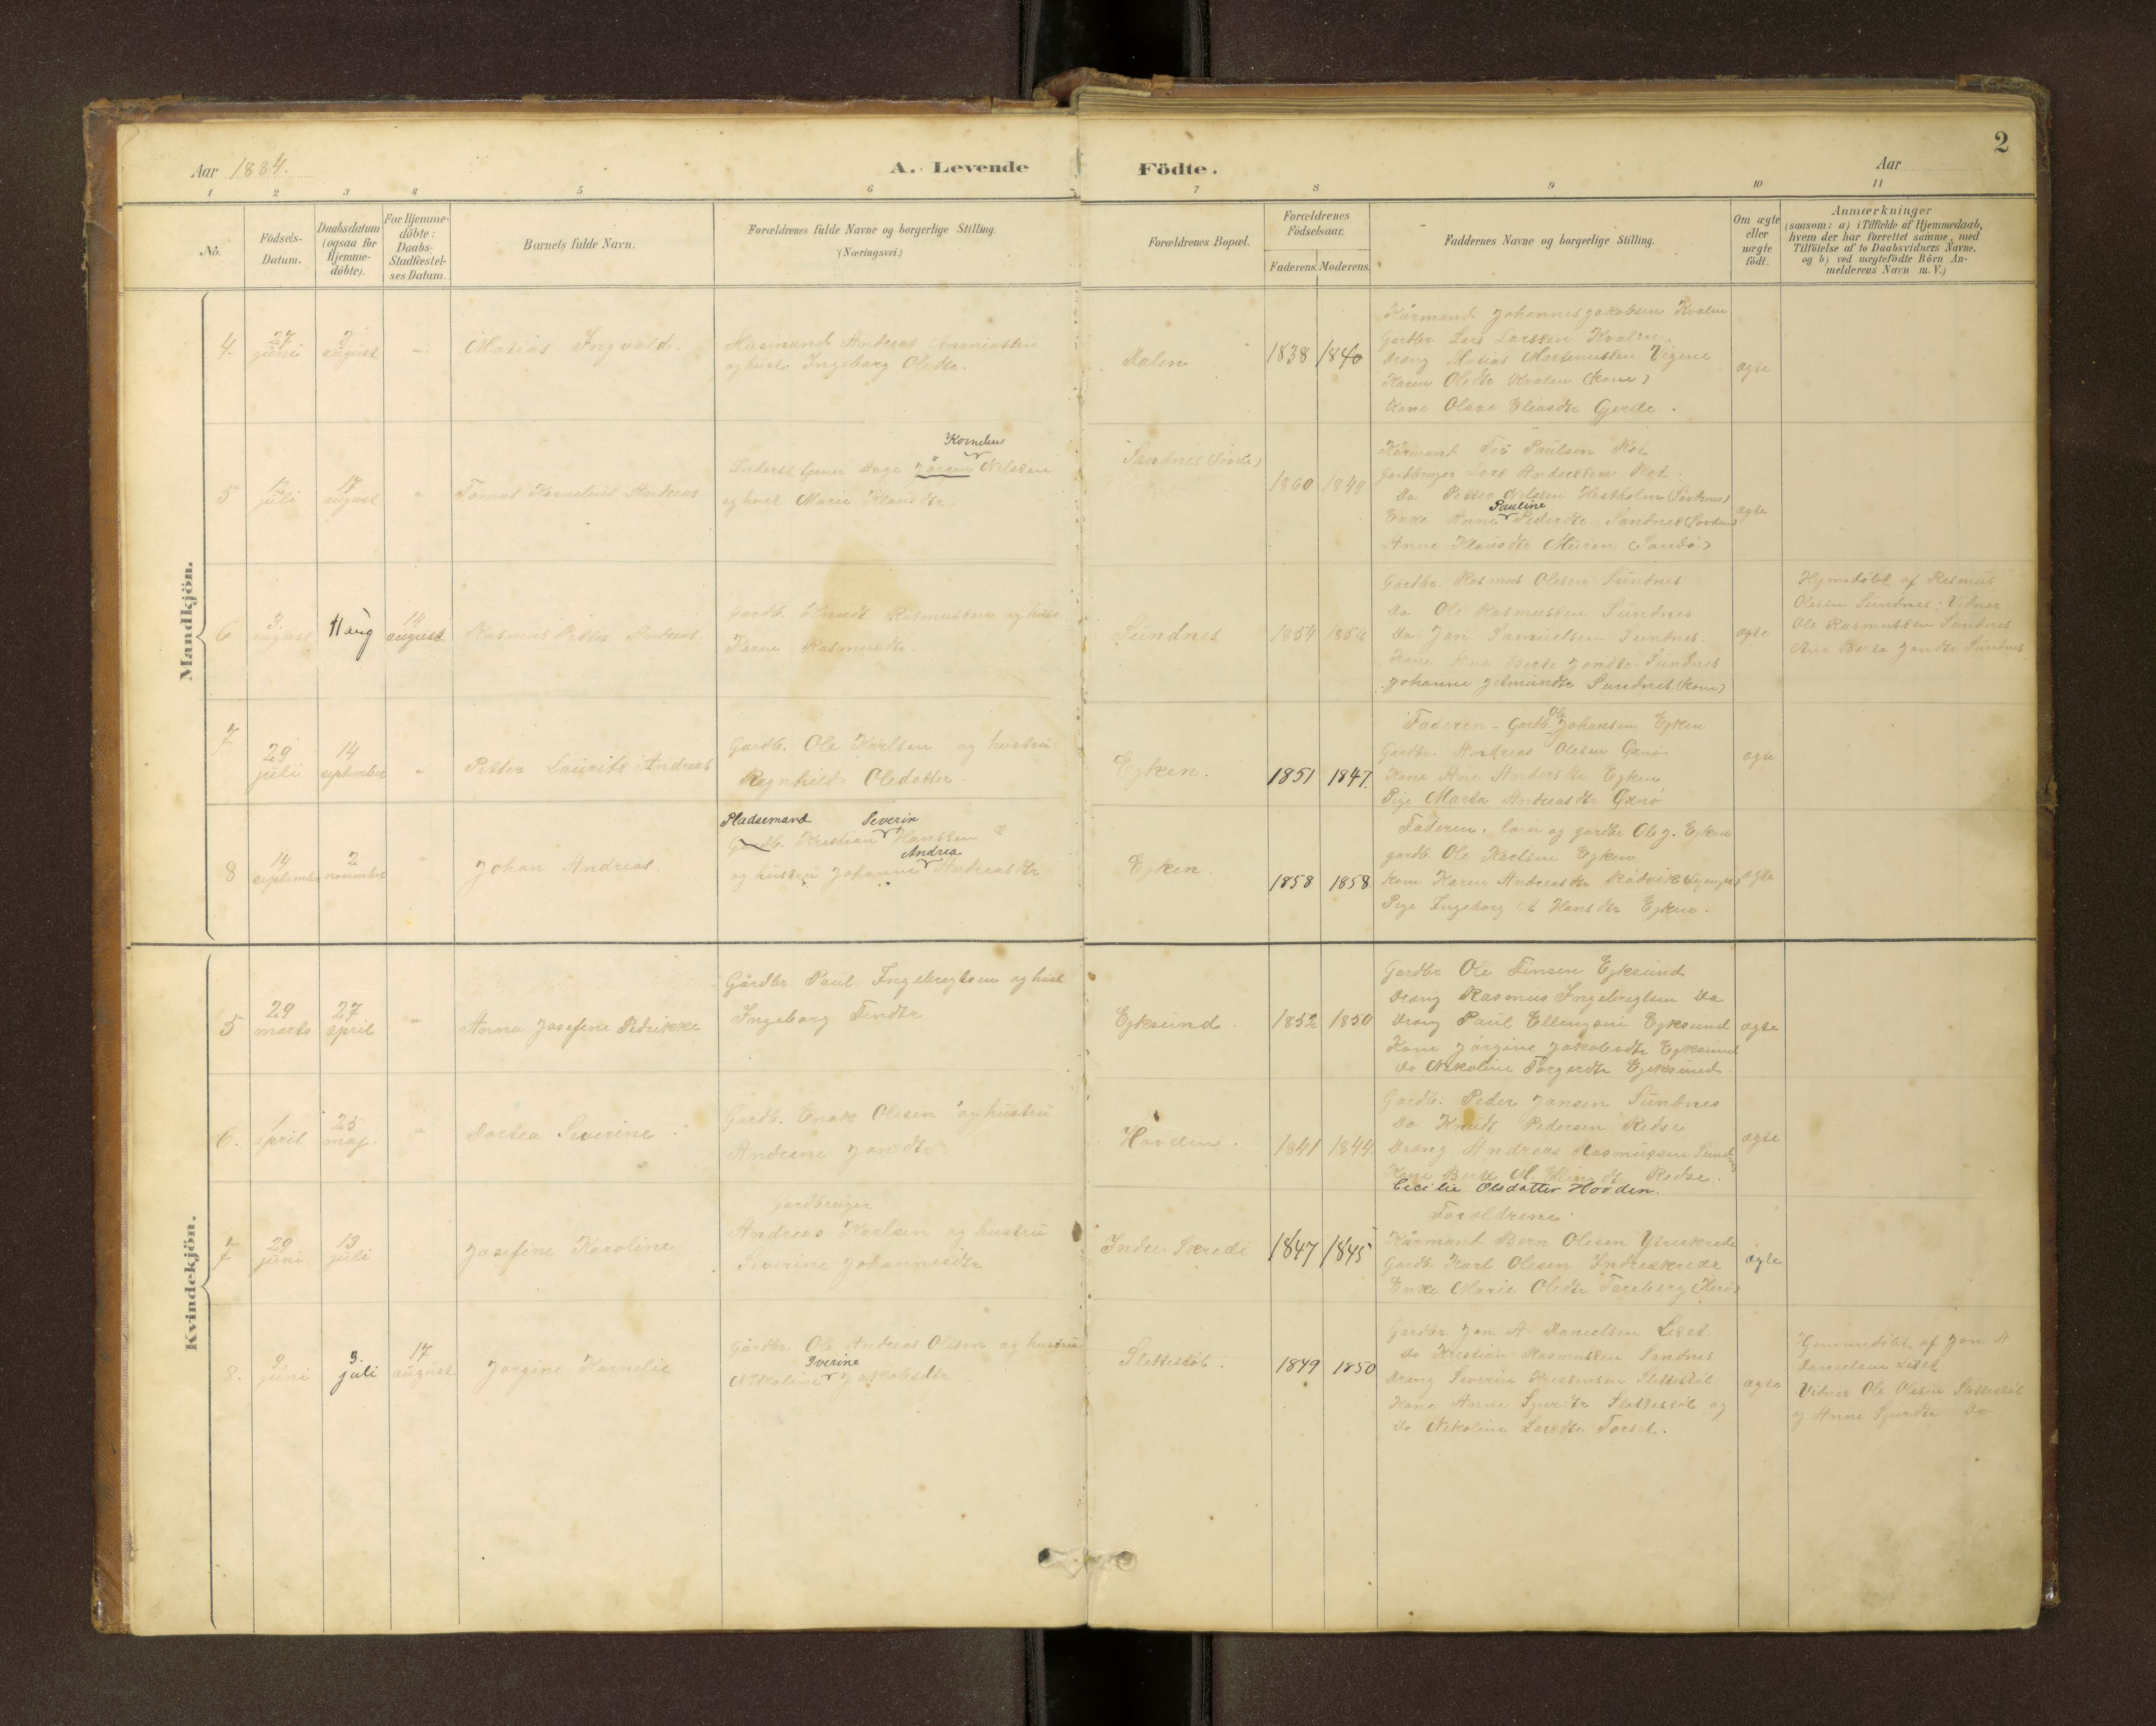 2
Aar 1884.
A. Levende Födte.
Aar
1 2 3 4 5 6 7 8 9 10 11
No.
Födsels-
Datum.
Daabsdatum
(ogsaa för
Hjemme-
döbte).
For Hjemme-
döbte:
Daabs-
Stadfæstel-
ses Datum.
Barnets fulde Navn.
Forældrenes fulde Navne og borgerlige Stilling.
(Næringsvei.)
Forældrenes Bopæl.
Forældrenes
Födselsaar.
Faderens. Moderens.
Faddernes Navne og borgerlige Stilling.
Om ægte
eller
uægte
födt.
Anmærkninger
(saasom: a) i Tilfælde af Hjemmedaab,
hvem der har forrettet samme, med
Tilföielse af to Daabsvidners Navne,
og b) ved uægtefödte Börn An-
melderens Navn m. V.)
Mandkjön.
4.
27
juni
3
august
"
Matias Ingvald.
Husmand Andreas Ananiassen
og hust. Ingeborg Olsdtr.
Dalen
1838 1840
Kårmand Johannes Jakobsen Kvalen
Gardbr. Lars Larssen Kvalen
Dreng Matias Martinussen Vigene
Karen Olsdtr Kvalen (Kone)
Kone Olave Eliasdtr Gjerde.
ægte
5
12
juli
17
august
"
Tomas Kornelius Andreas
Kornelius
Inderst tjener Aage Jörgen Nilssen
og hust. Marie Klausdtr.
Sandnes (Sövde)
1860 1849
Kårmand Paulsen
Gardbruger Lars Andersen
Do Petter Nilssen Hestholm
Pauline
Enke Anne Pedersdtr. Sandnes
Anne Klausdtr Muren (Sandö)
ægte
6
3
august
11 aug
14
august
Rasmus Peder Andreas
gardb. Knudt Rasmussen og hust.
Karen Rasmusdtr.
Sundnes
1854 1856
Gardbr. Rasmus Olesen Sundnes
Do Ole Rasmussen Sundnes
Do Jon Samuelsen Sundnes.
Kone Ane Berte Jondtr. Sundnes
Johanne Sundnes (Kone)
ægte
Hjemedöbt af Rasmus
Olesen Sundnes; Vidner
Ole Rasmussen Sundnes
Ane Berte Jondtr Sundnes
7
29
juli
14
september
"
Petter Laurits Andreas
Gardb. Ole Karlsen og hustru
Ragnhild Olsdatter.
Ejken.
1851 1847.
Ole
Faderen - Gardb. Johansen Ejken
Gardbr. Andreas Olesen
Kone Ane Andersdtr Ejken
Pige Marta Andreasdtr
ægte
8
14
september
2
november
"
Johan Andreas
Pladsemand Severin
Gardb. Kristian Hanssen
Andrea
og hustru Johanne Andreasdtr
Ejken.
1858 1858
Faderen, og gardbr Ole J. Ejken
gardb. Ole Karlsen Ejken
Kone Karen Andreasdtr Rödvik
Pige Ingeborg Hansdtr Ejken.
ægte
Kvindekjön.
5
29
marts
27
april
"
Anna Josefine Pedrikke
Gårdbr. Paul Ingebregtsen og hust
Ingeborg Findtr
Ejksund.
1852 1850
Gardbr Ole Finsen Ejksund
Dreng Rasmus Ingebregtsen Do
Dreng Paul Ellingsen Ejksund
Kone Jörgine Jakobsdtr Ejksund
Do Nikoline Torgerdtr Ejksund
ægte
6.
1
april
25
maj
"
Dortea Severine.
Gardb. Enok Olesen og hustru
Andrine Jondtr.
Hovden.
1841 1844.
Gardb: Peder Jansen Sundnes
Do Knudt Pedersen Redse
Dreng Andreas Rasmussen Sundnes
Kone Berte M. Redse.
Cecilie Olsdatter Hovden.
ægte
7
29
juni
13
juli
Josefine Karoline
gardbruger
Andreas Karlsen og hustru
Severine Johannesdtr
Indre Skrede
1847 1845
Foroldrene
Kårmand Bern Olesen Ytreskrede
Gardb. Karl Olesen Indreskrede
Enke Marie Olsdtr Torsberg (Herö)
ægte
8.
9
juni
3.
juli
17
august
Jorgine Kornelie
Gårdbr. Ole Andreas Olesen og hustru
Iverine
Nikoline Jakobsdtr
Slettestöl.
1849 1850
Gardbr Jon A. Danielsen Liset.
Do Kristian Rasmussen Sandnes
Dreng Severin Kristensen Slettestöl
Kone Anne Sjurdtr Slettestöl og
Do Nikoline Larsdtr Torset.
ægte
Hjemmedöbt af Jon A
Danielsen Liset
Vidner Ole Olesen Slettestöl
og Anne Sjurdtr Do